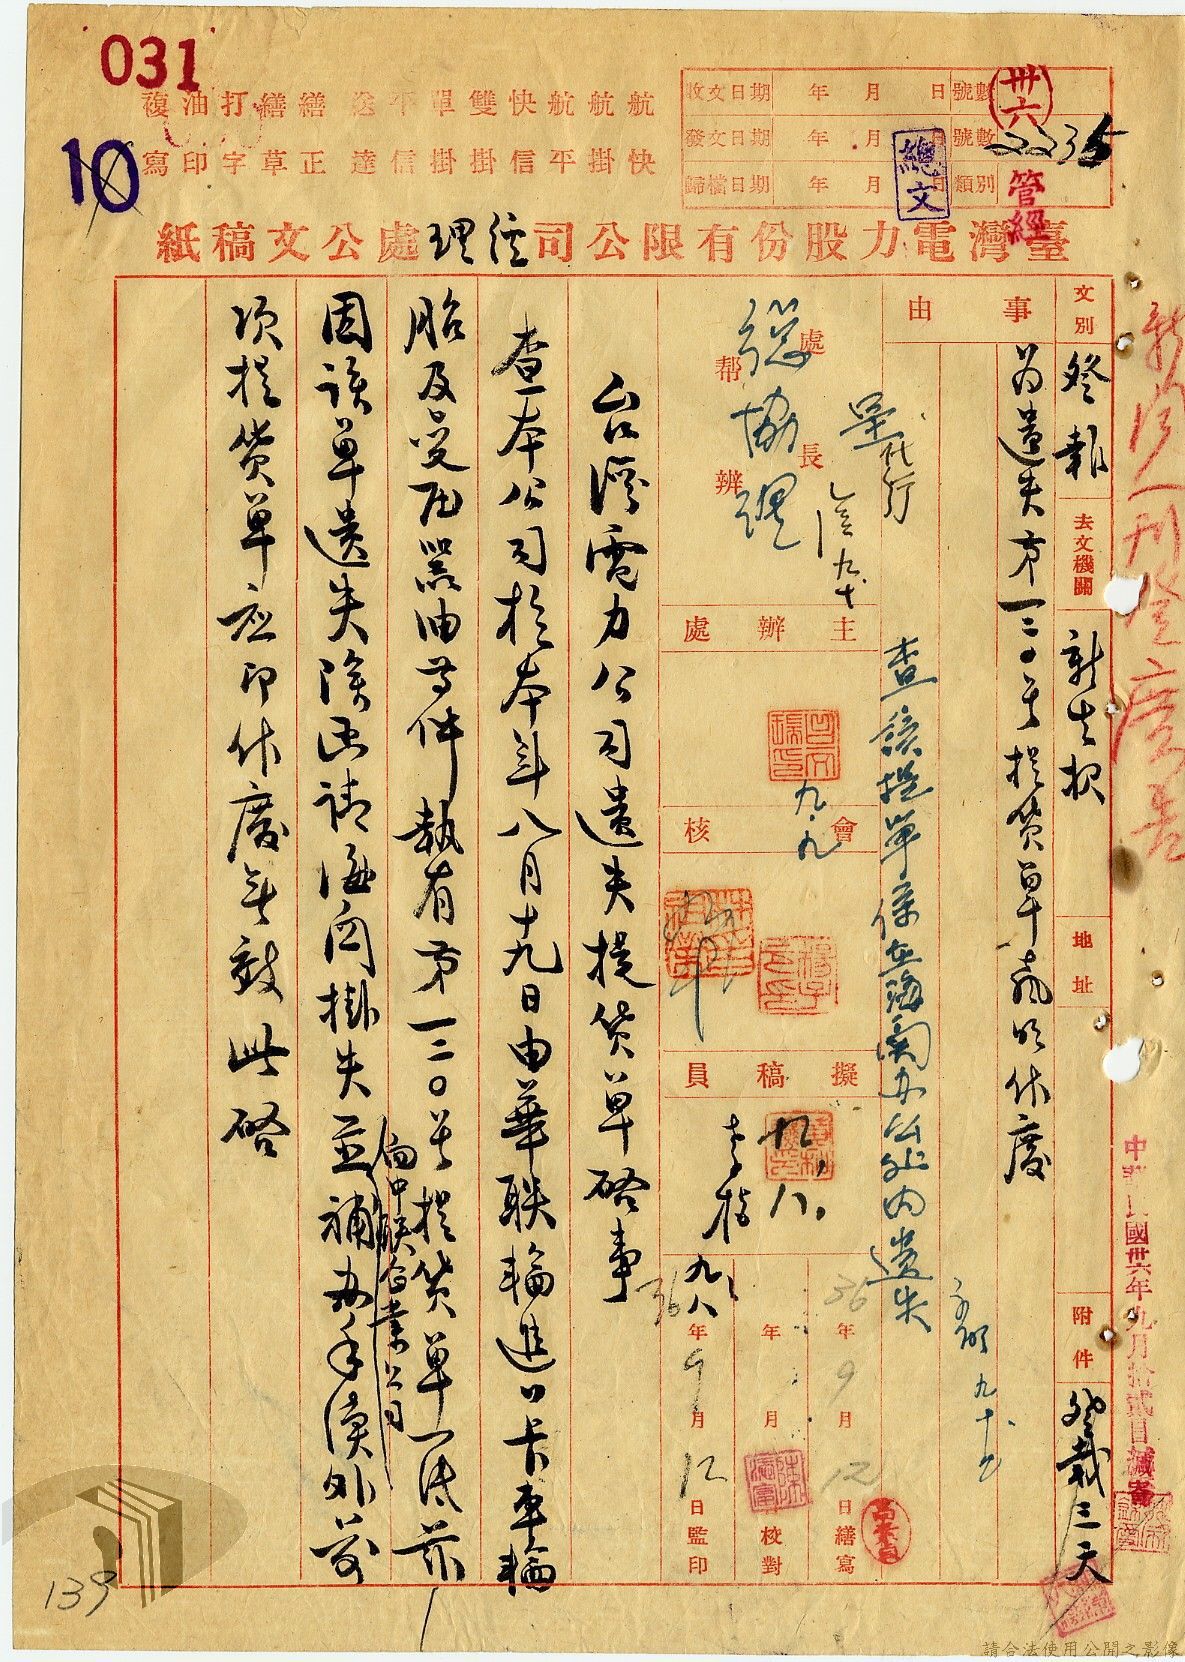 031
10
航 航 航 快 雙 單 平 送 繕 繕 打 油 複
快 掛 平 信 掛 掛 信 達 正 草 字 印 寫
收文日期 年 月 日 號數
發文日期 年 月 日 號數
歸檔日期 年 月 日 類別
卅六
2235
管經
總文
臺灣電力股份有限公司經理處公文稿紙
新店刊登廣告
中華民國卅六年九月拾貳日緘寄
文別 登報
去文機關 新生报
地址
附件 登載三天
事由
为遺失第一二〇号提貨单聲明作廢
查該提單係在海関办公处内遺失
處長
幫辦
總協理
主辦處
九.九
會核
擬稿員
九.八.
九八
36年9月12日繕寫
年 月 日校對
36年9月12日監印
台湾電力公司遺失提貨單啓事
查本公司於本年八月十九日由華联輪進口卡車輪
胎及变压器油等件執有第一二〇号提貨單一紙茲
因該單遺失除函請海関掛失並向中联企業公司補办手續外前
項提貨單应即作廢無效此啓
139
請合法使用公開之影像